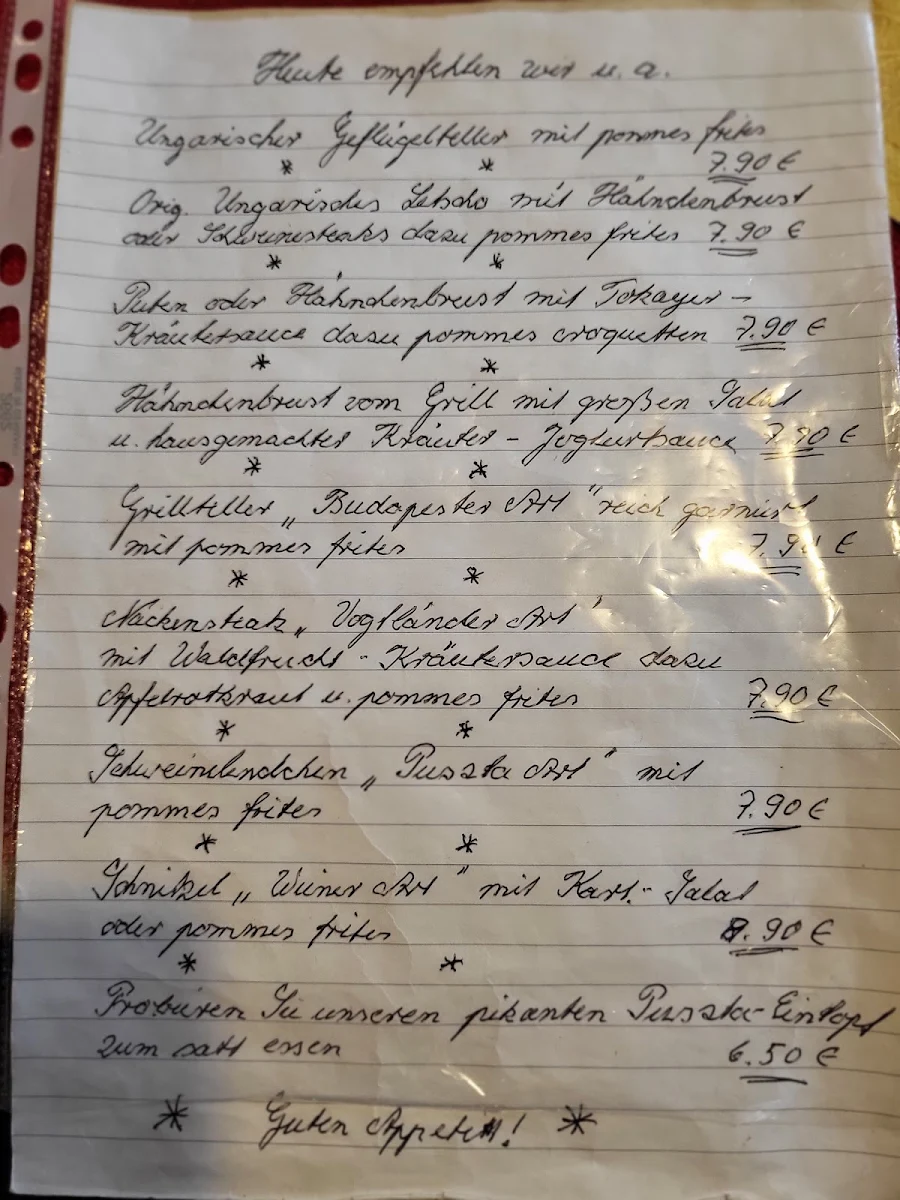 Heute empfehlen wir u. a.
Ungarischer Geflügelteller mit pommes frites
* * 7.90 €
Orig. Ungarisches Letscho mit Hähnchenbrust
oder Schweinesteaks dazu pommes frites 7.90 €
* *
Puten oder Hähnchenbrust mit Tokayer -
Kräutersauce dazu pommes croquetten 7.90 €
* *
Hähnchenbrust vom Grill mit großen Salat
u. hausgemachter Kräuter - Joghurtsauce 7.90 €
* *
Grillteller „Budapester Art" reich garniert
mit pommes frites 7.90 €
* *
Nackensteak „Vogtländer Art"
mit Waldfrucht - Kräutersauce dazu
Apfelrotkraut u. pommes frites 7.90 €
* *
Schweinelendchen „Puszta Art" mit
pommes frites 7.90 €
* *
Schnitzel „Wiener Art" mit Kart.- Salat
oder pommes frites 8.90 €
* *
Probieren Sie unseren pikanten Puszta-Eintopf
zum satt essen 6.50 €
* Guten Appetit! *